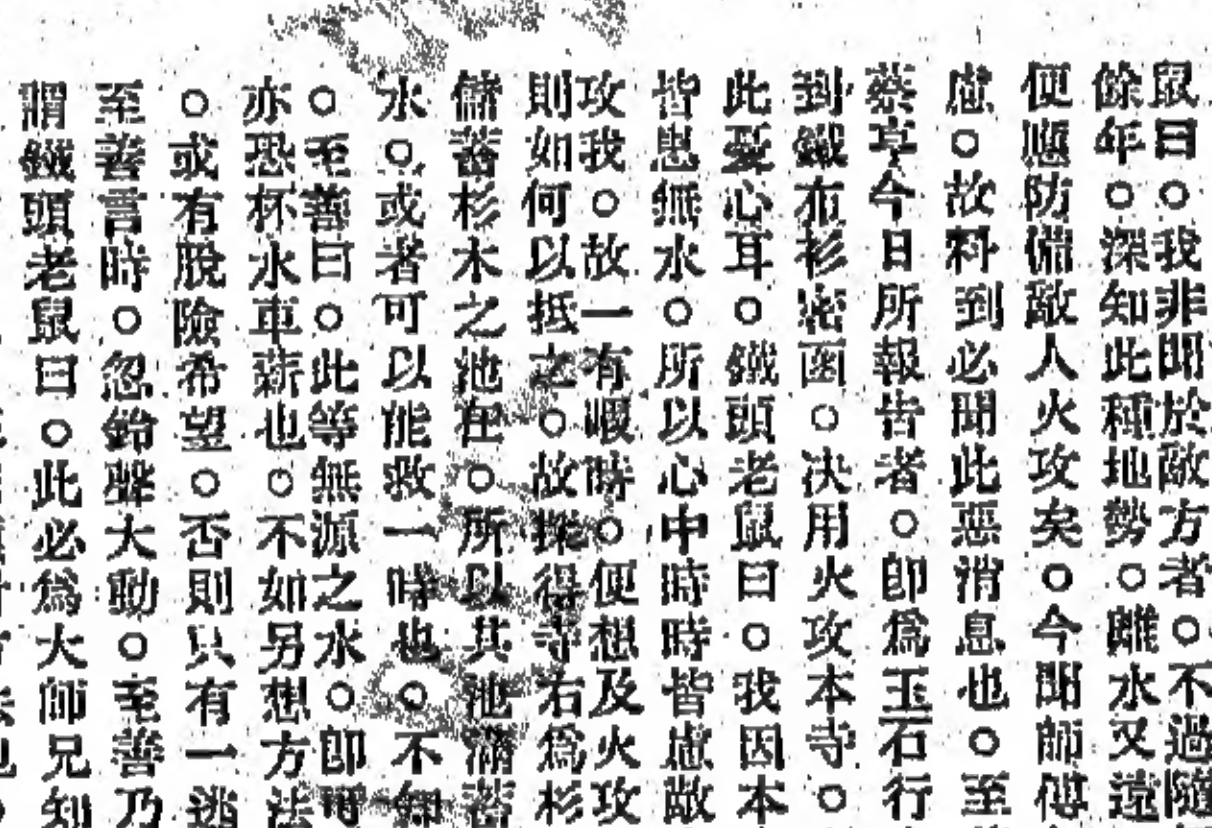 鼠曰。我非聞於敵方者。不過隨
餘年。深知此種地勢。離水又遠
便應防備敵人火攻矣。今聞師傅
慮。故料到必聞此惡消息也。至
蔡亭今日所報告者。即爲玉石行
到鐵布衫密函。决用火攻本寺。
此憂心耳。鐵頭老鼠曰。我因本
皆患無水。所以心中時時皆慮敵
攻我。故一有暇時。便想及火攻
則如何以抵之。故探得寺右爲杉
儲蓄杉木之池在。所以其池滿蓄
水。或者可以能救一時也。不知
。至善曰。此等無源之水。即可
亦恐杯水車薪也。不如另想方法
。或有脫險希望。否則只有一逃
至善言時。忽鈴聲大動。至善乃
謂鐵頭老鼠曰。此必爲大師兄知